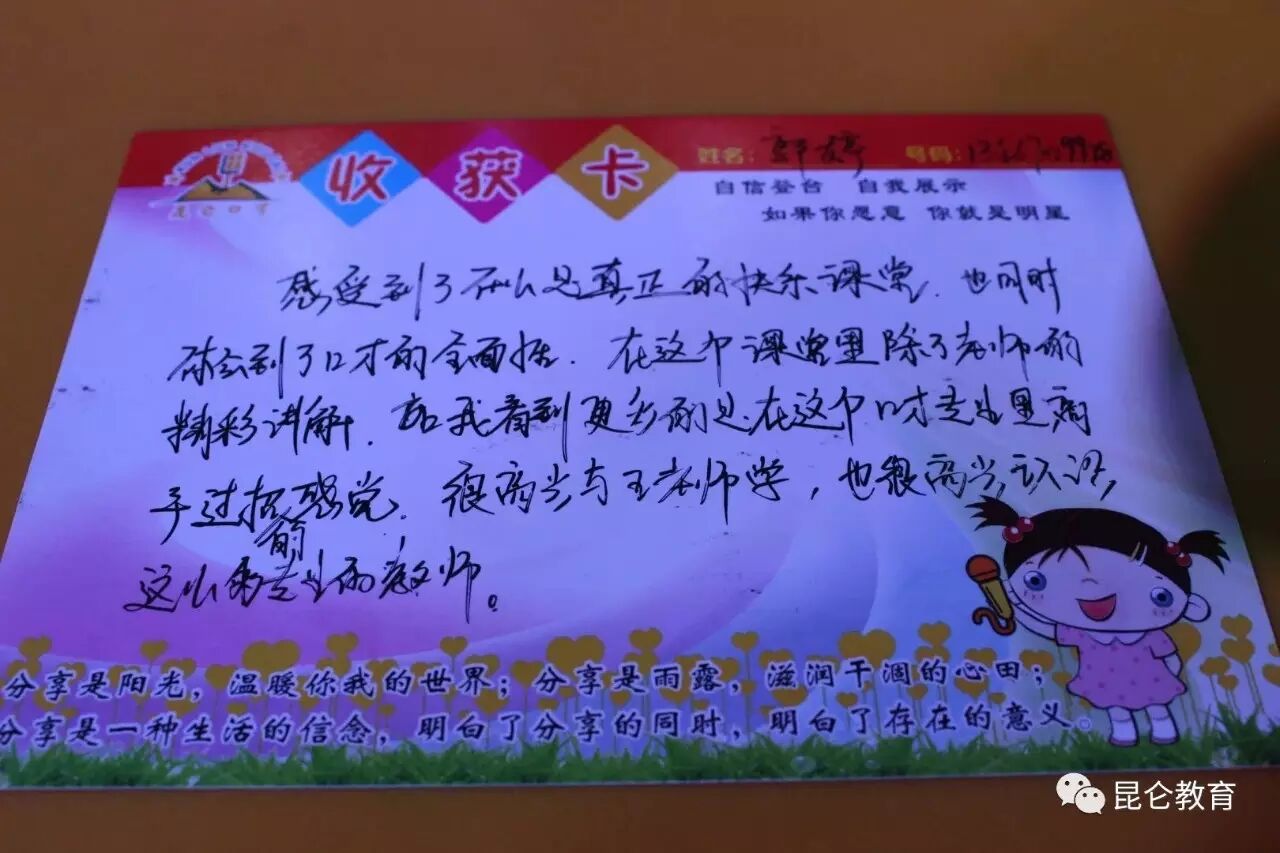 收获卡
姓名：郭婷 号码：
自信登台 自我展示
如果你愿意 你就是明星
昆仑口才
感受到了什么是真正的快乐课堂.也同时
体会到了口才的全面性.在这个课堂里除了老师的
精彩讲解.看到更多的是在这个口才里高
手过招的感觉.很高兴与王老师学，也很高兴认识，
这么的教师。
分享是阳光，温暖你我的世界；分享是雨露，滋润干涸的心田；
分享是一种生活的信念，明白了分享的同时，明白了存在的意义。
昆仑教育